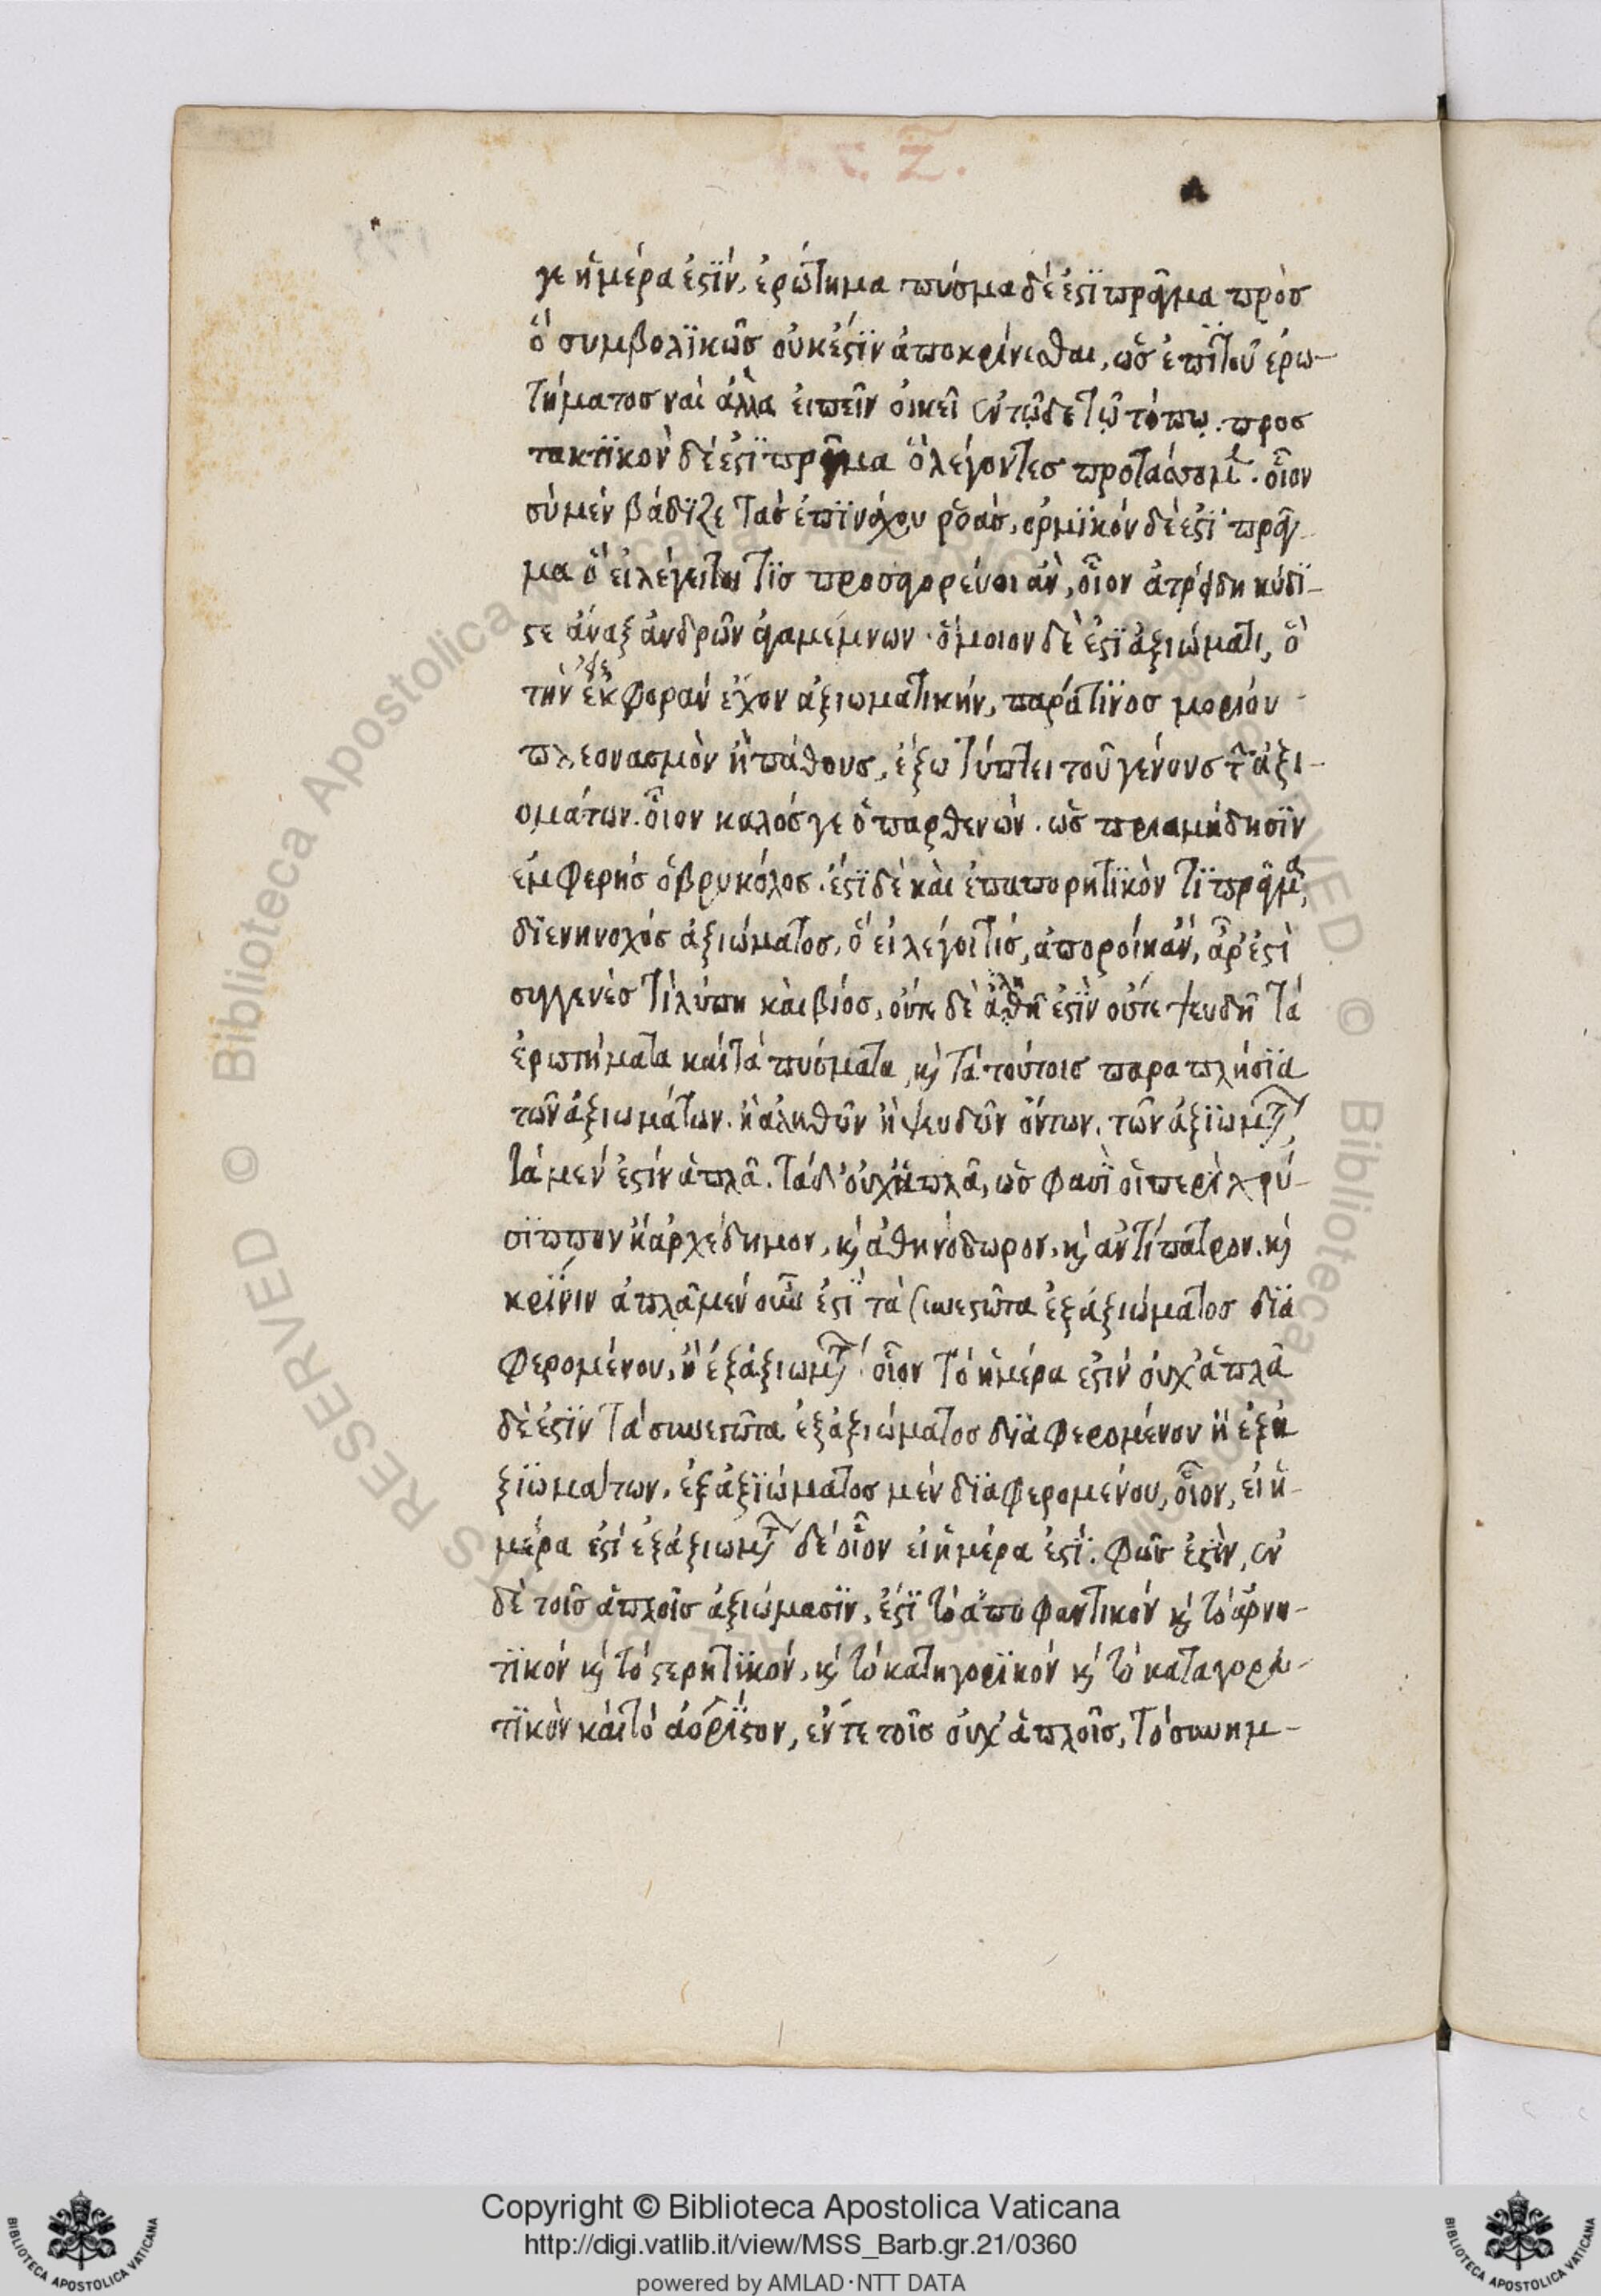 γε ἡμέρα ἐστϊν, ἐρώτημα πύσμα δέ ἐστϊ πρᾶγμα πρὸσ
ὅ συμβολϊκῶσ οὐκέστϊν ἀποκρίνεσθαι, ὡσ ἐπὶ τοῦ ἐρω-
τήματοσ ναὶ ἀλλὰ εἰπεῖν οἰκεῖ ἐν τῷδε τῷ τόπῳ. προσ
τακτϊκὸν δέ ἐστϊ πρᾶγμα ὅ λέγοντεσ
σὺ μέν βάδϊζε τὰσ ἐπϊ νάχου ῥοάσ, ορμϊκόν δέ ἐστϊ πρᾶγ-
μα ὅ εἰ λέγει τοι τϊσ προσαγορεύοι ἀν, οἷον ἀτρείδη κύδϊ-
στε ἄναξ ἀνδρῶν ἀγαμέμνων. ὅμοιον δέ ἐστϊ ἀξιώματι, ὅ
τὴν ἐκφορὰν ἔχον ἀξιωματικήν, παρά τϊνοσ μορίου
πλεονασμὸν ἢ πάθουσ, ἔξω πίπτει τοῦ γένουσ τῶν ἀξι-
ομάτων. οἷον καλόσ γε ὁ παρθενών. ὡσ πριαμήδησϊν
ἐμφερήσ ὁ βρυκόλοσ. ἔστϊ δὲ κὰι ἐπαπορητϊκὸν τϊ πρᾶγμα,
δϊενηνοχόσ ἀξιώματοσ, ὅ εἰ λέγοι τισ, ἀποροίη ἄν, ἆρ' ἐστὶ
συγγενέσ τι λύπη κὰι βίοσ, ούτε δὲ ἀληθῆ ἐστϊν οὔτε ψευδῆ τά
ἐρωτήματα καὶ τὰ πύσματα, κὶ τὰ τούτοισ παραπλήσϊα
τῶν ἀξιωμάτων. ἢ ἀληθῶν ἢ ψευδῶν ὄντων. τῶν ἀξϊωμάτων
τὰ μέν ἐστίν ἁπλᾶ. τὰ δ' οὐχ ἁπλᾶ, ὡσ φασϊ οἱ περὶ χρύ-
σϊππον κ̀ ἀρχέδημον, κὶ ἀθηνόδωρον, κὶ ἀντίπατρον. κὶ
κρίνιν ἁπλᾶ μὲν οὖν ἐστϊ τὰ συνεστῶτα ἐξ ἀξιώματοσ δϊα
φερομένου, ἢ ἐξ ἀξιωμάτων οἷον τὸ ἡμέρα ἐστίν οὐχ' ἁπλᾶ
δέ ἐστϊν τὰ συνεστῶτα ἐξ ἀξιώματοσ δϊαφερομένου ἢ ἐξ ἀ
ξϊωμάτων, ἐξ ἀξϊώματοσ μὲν δϊαφερομένου, οἷον, εἰ ἡ-
μέρα ἐστί ἐξ ἀξιωμάτων δὲ οἷον εἰ ἡμέρα ἐστϊ. φῶσ ἐστϊν, ἐν
δὲ τοῖσ ἁπλοῖσ ἀξιώμασϊν, ἐστϊ τὸ ἀποφαντικόν κὶ τὸ ἀρνη-
τϊκόν κὶ τὸ στερητϊκόν, κὶ τὸ κατηγορϊκόν κὶ τὸ καταγορευ-
τϊκὸν κὰι τὸ ἀόρϊστον, ἐν τε τοῖσ οὐχ' ἁπλοῖσ, τὸ συνημ-
Copyright © Biblioteca Apostolica Vaticana
http://digi.vatlib.it/view/MSS_Barb.gr.21/0360
powered by AMLAD·NTT DATA